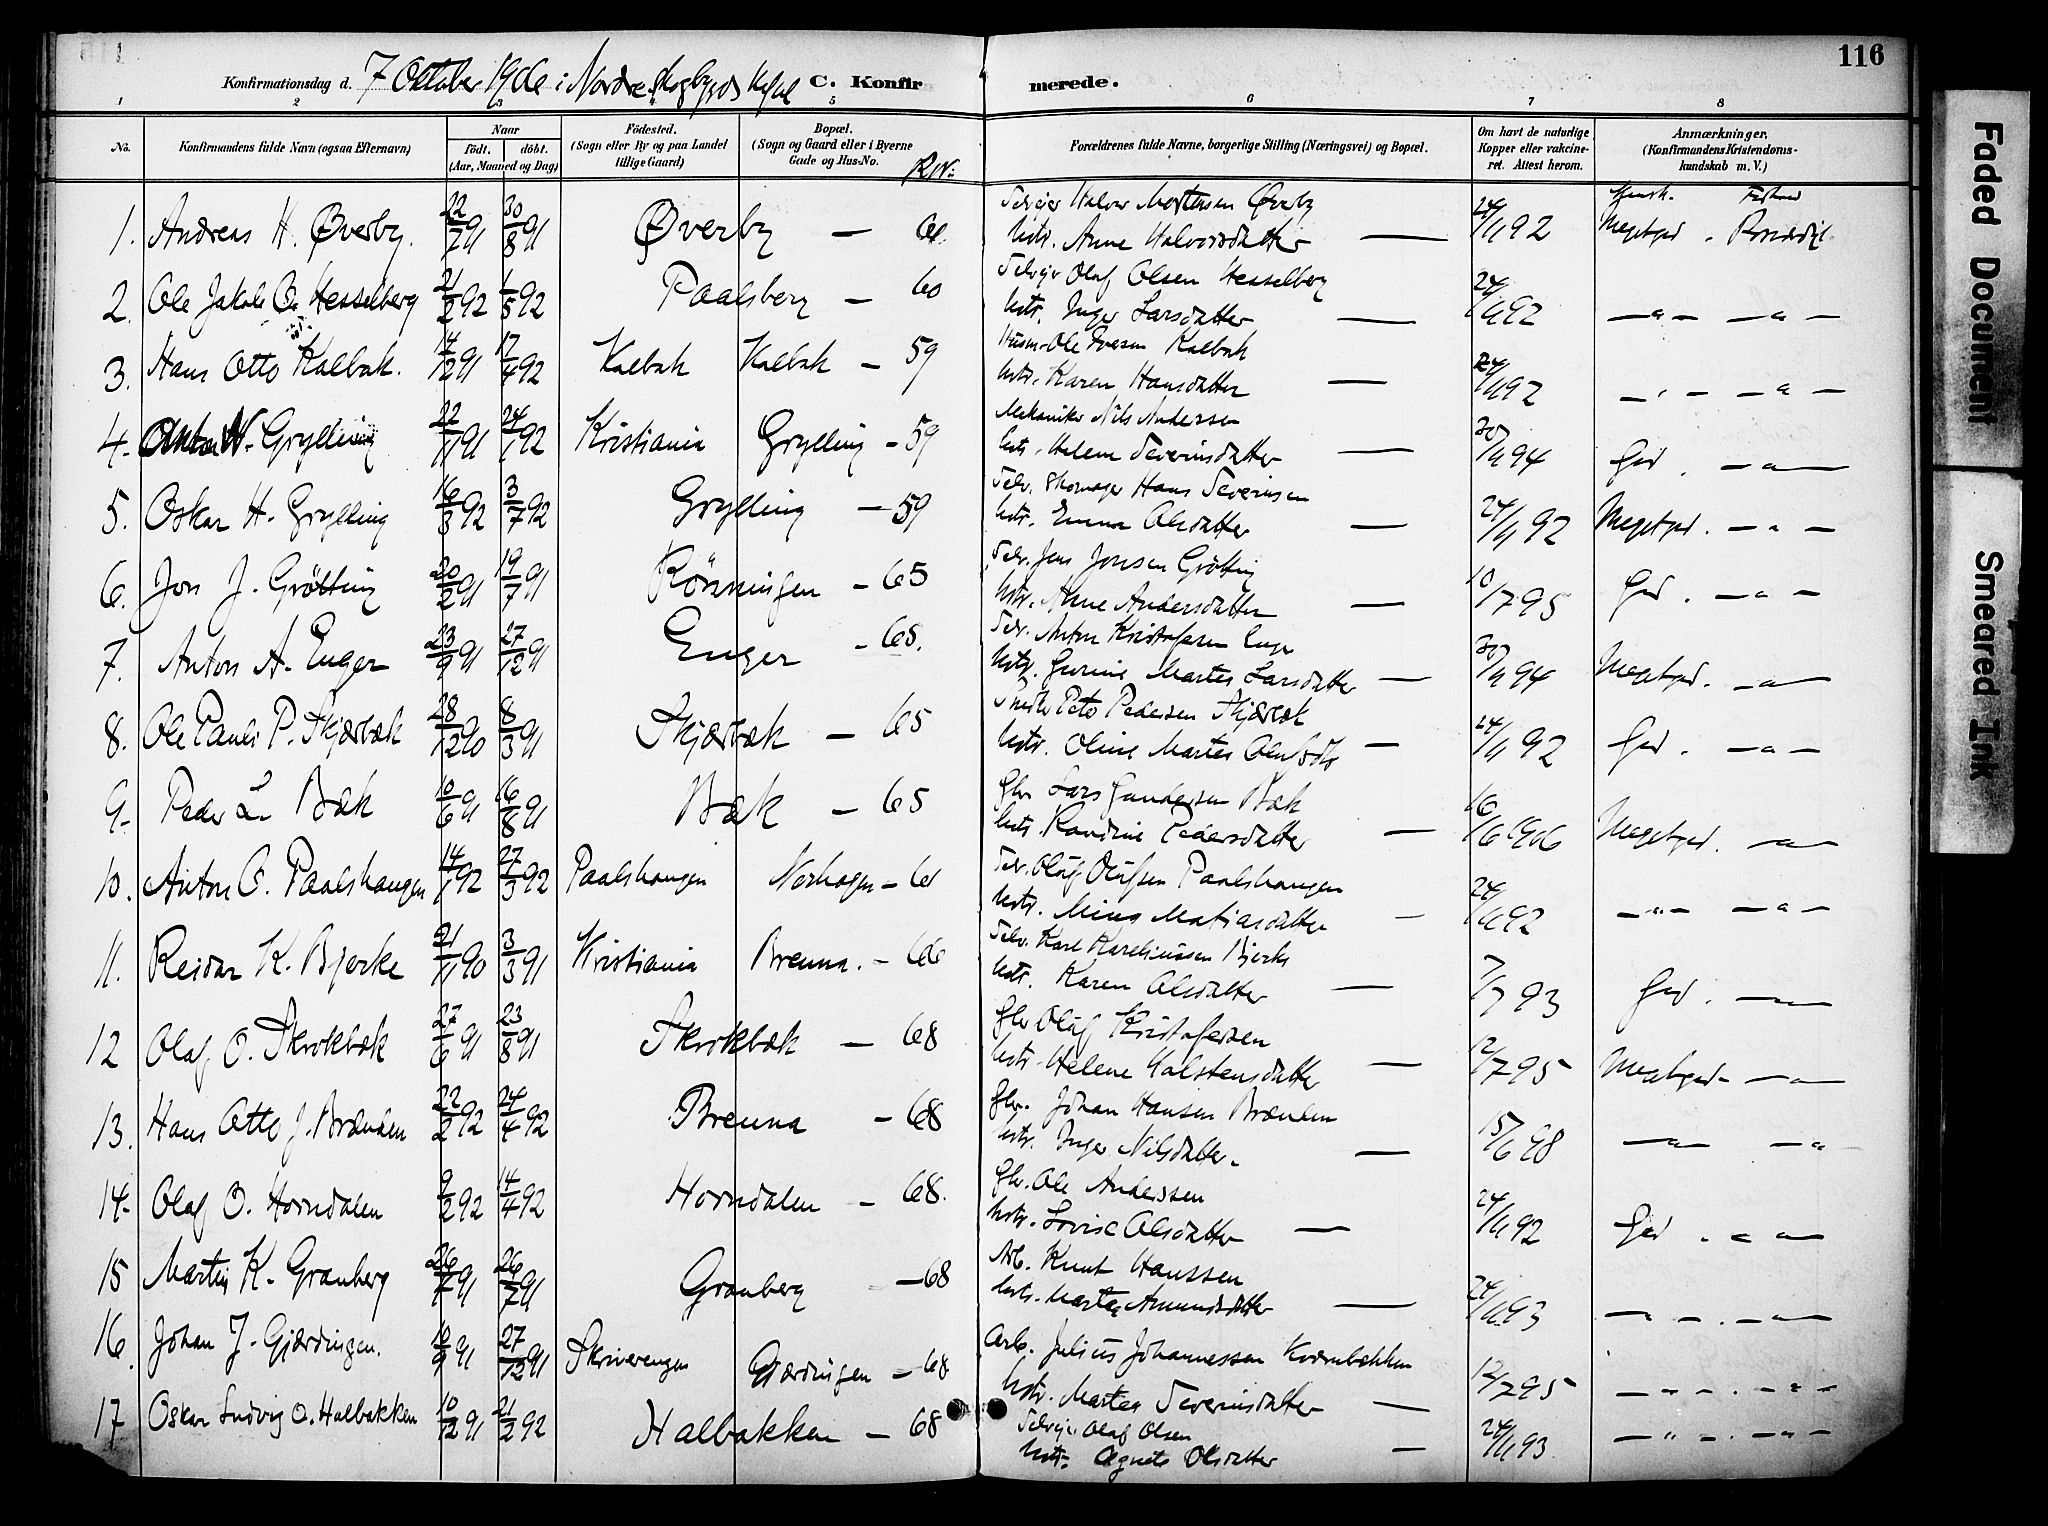 116
Konfirmationsdag d. 7 Oktober 1906 i Nordre Skogbygds Kapel C. Konfirmerede.
1 2 3 5 6 7 8
No. Konfirmandens fulde Navn (ogsaa Efternavn) Naar födt. döbt. (Aar, Maaned og Dag) Födested. (Sogn eller By og paa Landet tillige Gaard) Bopæl. (Sogn og Gaard eller i Byerne Gade og Hus-No. R.N. Forældrenes fulde Navne, borgerlige Stilling (Næringsvei) og Bopæl. Om havt de naturlige Kopper eller vakcineret. Attest herom. Anmærkninger. (Konfirmandens Kristendomskundskab m. V.)
1. Andreas H. Øverby. 22/7 91 30/8 91 Øverby — 61. Selveier Halvor Mortensen Øverby
Hstr. Anne Halvorsdatter — 24/9 92 Megetgod.
2. Ole Jakob O. Hesselberg 21/2 92 1/5 92 Paalsberg — 60 Selveier Olaf Olsen Hesselberg
Hstr. Inger Larsdatter — 24/9 92 — " — — " —
3. Hans Otto Kalbak. 4/12 91 17/4 92 Kalbak Kalbak — 59 Husm. Ole Iversen Kalbak
Hstr. Karen Hansdatter — 24/9 92 — " — — " —
4. Anton N. Grylling 22/11 91 24/1 92 Kristiania Grylling — 59 Mekaniker Nils Andersen
Hstr. Helene Severinsdatter — 30/9 94 God. — " —
5. Oskar H. Grylling 16/3 92 3/7 92 Grylling — 59 Selv. Skomager Hans Severinsen
Hstr. Emma Olsdatter — 24/9 92 Megetgod. — " —
6. Jon J. Grötting 20/2 91 19/7 91 Rönningen — 65 Selv. Jens Jonsen Grötting
Hstr. Anne Andersdatter — 10/7 95 God. — " —
7. Anton A. Enger 23/9 91 27/12 91 Enger — 65. Selv. Anton Kristofersen Enger
Hstr. Gurine Martea Larsdatter — 30/9 94 Megetgod. — " —
8. Ole Pauli P. Skjærbæk 28/12 90 8/3 91 Skjærbæk — 65 Peder Pedersen Skjærbæk
Hstr. Oline Martea — 24/9 92 God. — " —
9. Peder L. Bæk 10/6 91 16/8 91 Bæk — 65 Gbr. Lars Gundersen Bæk
Hstr. Randine Pedersdatter — 16/6 1906 Megetgod. — " —
10. Anton O. Paalshaugen 14/1 92 27/3 92 Paalshaugen Norhagen — 61 Selv. Oluf Olufsen Paalshaugen
Hstr. Mina Matiasdatter — 24/9 92 — " — — " —
11. Reidar K. Bjerke 21/11 90 3/3 91 Kristiania Brenna. — 66 Selv. Karl Kareliussen Bjerke
Hstr. Karen Olsdatter — 7/7 93 God. — " —
12 Olaf O. Skrokbæk 27/6 91 23/8 91 Skrokbæk — 68 Gbr Oluf Kristofersen
Hstr. Helene Halstensdatter — 12/7 95 Megetgod — " —
13. Hans Otto J. Brænden 22/2 92 24/4 92 Brenna — 68 Gbr. Johan Hansen Brænden
Hstr. Inger Nilsdatter. — 15/6 98 — " — — "
14. Olaf O. Horndalen 9/2 92 14/4 92 Horndalen — 68. Gbr. Ole Anderssen
Hstr. Lovise Olsdatter — 24/9 92 God. — " —
15 Martin K. Granberg 26/4 91 26/7 91 Granberg — 68 Arb. Knut Hanssen
Hstr. Martea Amundsdatter — 24/9 93 — " — . — " —
16. Johan J. Gjærdingen. 10/9 91 27/12 91 Skriverengen Gjærdingen — 68 Arb. Julius Johannessen Kværnbækken
Hstr. Martea Severinsdatter — 12/7 95 — " — . — " —
17 Oskar Ludvig O. Halbakken 10/12 91 21/2 92 Halbakken — 68 Selveier Olaf Olsen
Hstr. Agnete Olsdatter — 24/9 93 — " — . — " —
Faded Document
Smeared Ink